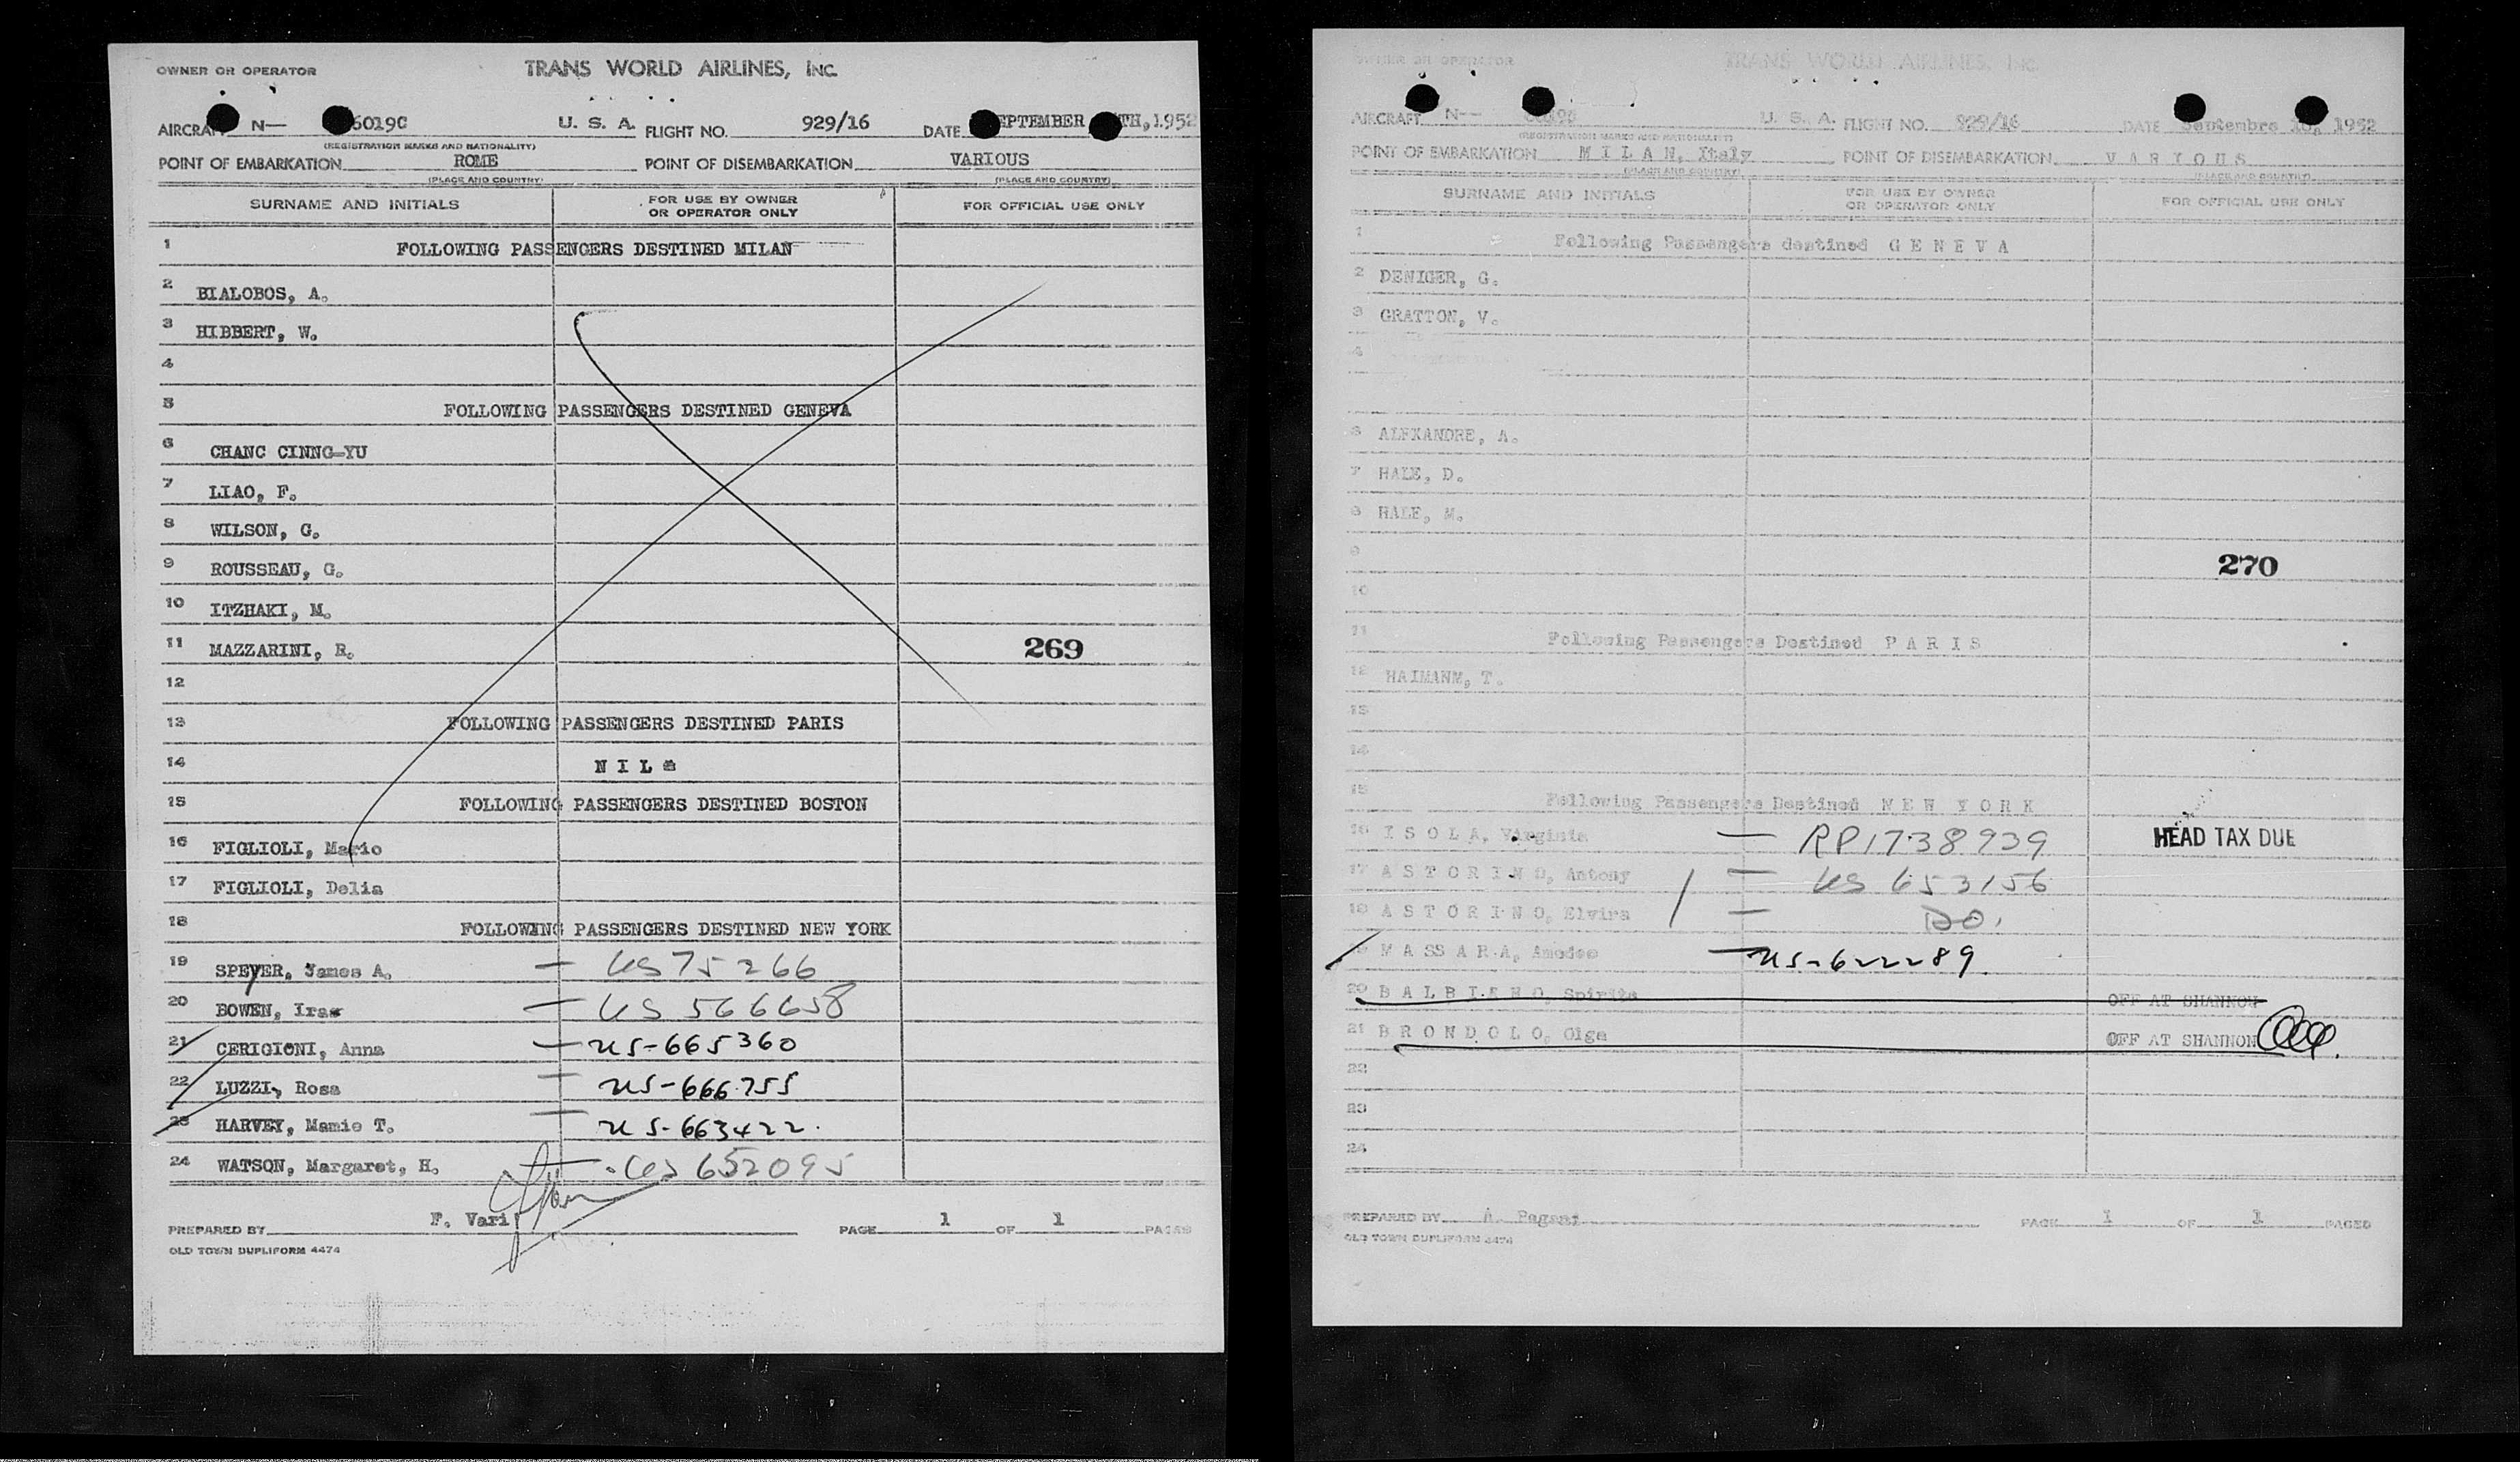 OWNER OR OPERATOR
TRANS WORLD AIRLINES, INC.
AIRCRAFT N— 6019C U. S. A. FLIGHT NO. 929/16 DATE SEPTEMBER TH, 1952
(REGISTRATION MARKS AND NATIONALITY)
POINT OF EMBARKATION ROME POINT OF DISEMBARKATION VARIOUS
(PLACE AND COUNTRY) (PLACE AND COUNTRY)
SURNAME AND INITIALS FOR USE BY OWNER OR OPERATOR ONLY FOR OFFICIAL USE ONLY
1 FOLLOWING PASSENGERS DESTINED MILAN
2 BIALOBOS, A.
3 HIBBERT, W.
4
5 FOLLOWING PASSENGERS DESTINED GENEVA
6 CHANC CINNG-YU
7 LIAO, F.
8 WILSON, G.
9 ROUSSEAU, G.
10 ITZHAKI, M.
11 MAZZARINI, R. 269
12
13 FOLLOWING PASSENGERS DESTINED PARIS
14 N I L
15 FOLLOWING PASSENGERS DESTINED BOSTON
16 FIGLIOLI, Mario
17 FIGLIOLI, Delia
18 FOLLOWING PASSENGERS DESTINED NEW YORK
19 SPEYER, James A. — US 75266
20 BOWEN, Iras — US 566658
21 CERIGIONI, Anna — US-665360
22 LUZZI, Rosa — US-666755
23 HARVEY, Mamie T. — US-663422.
24 WATSON, Margaret, H. — US 652095
PREPARED BY F. Vari PAGE 1 OF 1 PAGES
OLD TOWN DUPLIFORM 4474
OWNER OR OPERATOR
TRANS WORLD AIRLINES, INC.
AIRCRAFT N-- U. S. A. FLIGHT NO. 929/16 DATE Septembre 16, 1952
(REGISTRATION MARKS AND NATIONALITY)
POINT OF EMBARKATION M I L A N, Italy POINT OF DISEMBARKATION V A R I O U S
(PLACE AND COUNTRY) (PLACE AND COUNTRY)
SURNAME AND INITIALS FOR USE BY OWNER OR OPERATOR ONLY FOR OFFICIAL USE ONLY
1 Following Passengers destined G E N E V A
2 DENIGER, G.
3 GRATTON, V.
4
6 ALEXANDRE, A.
7 HALE, D.
8 HALE, M.
9 270
10
11 Following Passengers Destined P A R I S
12 HAIMANN, T.
13
14
15 Following Passengers Destined N E W Y O R K
16 I S O L A, Virginia — RP1738939 HEAD TAX DUE
17 A S T O R I N O, Antony — US 653156
18 A S T O R I N O, Elvira — DO.
19 M A S S A R A, Amedeo — US-622289.
20 B A L B I A N O, Spirito OFF AT SHANNON
21 B R O N D O L O, Olga OFF AT SHANNON
22
23
24
PREPARED BY A. Pagani PAGE 1 OF 1 PAGES
OLD TOWN DUPLIFORM 4474